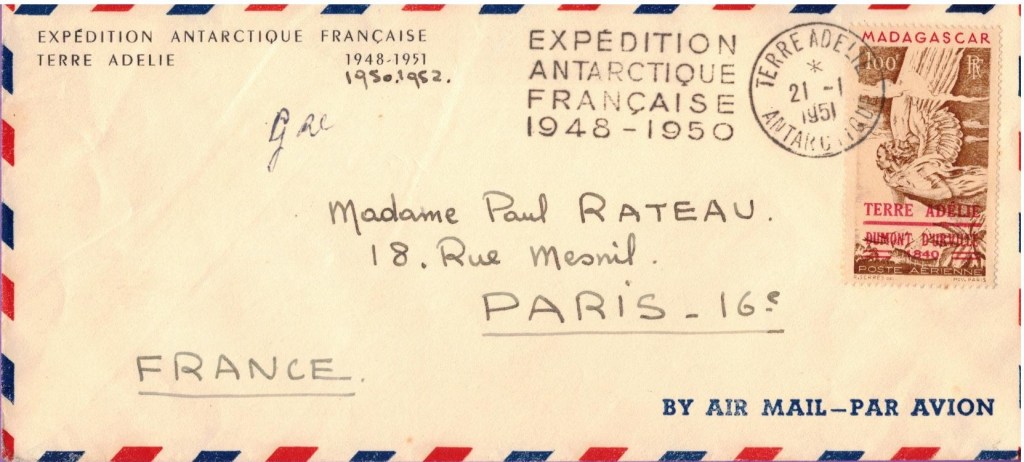 EXPÉDITION ANTARCTIQUE FRANÇAISE
TERRE ADELIE 1948-1951
1950.1952.
EXPÉDITION
ANTARCTIQUE
FRANÇAISE
1948-1950
TERRE ADELIE
*
21 -1
1951
ANTARCTIQUE
MADAGASCAR
100F
RF
TERRE ADÉLIE
DUMONT D'URVILLE
1840
POSTE AÉRIENNE
Madame Paul RATEAU.
18. Rue Mesnil.
PARIS_16e
FRANCE.
BY AIR MAIL—PAR AVION